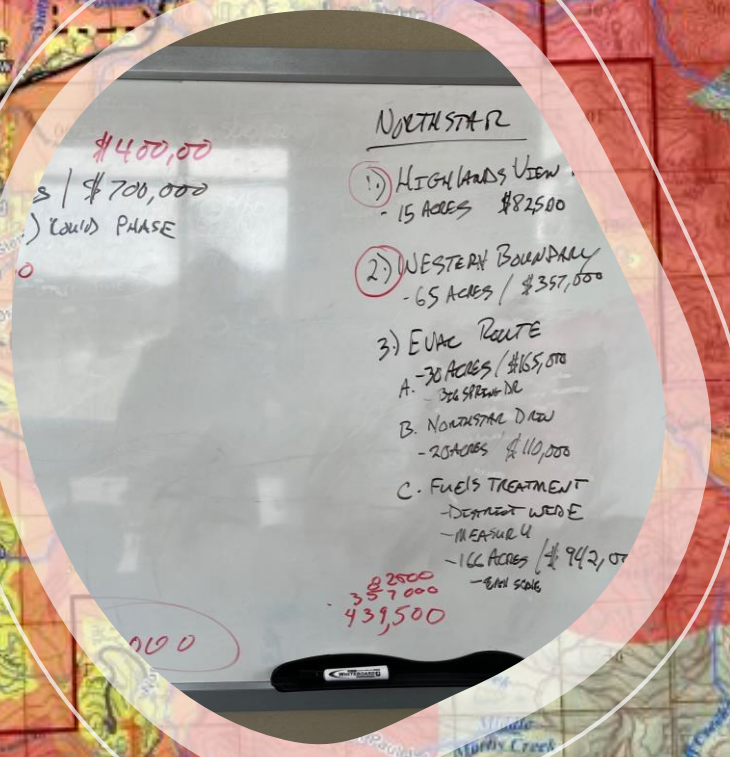 $400,00
s / $700,000
.) COULD PHASE
0
000
NORTHSTAR
1.) HIGHLANDS VIEW
- 15 ACRES $82500
2.) WESTERN BOUNDARY
- 65 ACRES / $357,000
3.) EVAC ROUTE
A. - 30 ACRES / $165,000
- BIG SPRING DR
B. NORTHSTAR DRIV
- 20 ACRES $110,000
C. FUELS TREATMENT
- DISTRICT WIDE
- MEASURE U
- 166 ACRES / $942,0
82500
357000
439,500
WHITEBOARD
Middle
Martis Creek